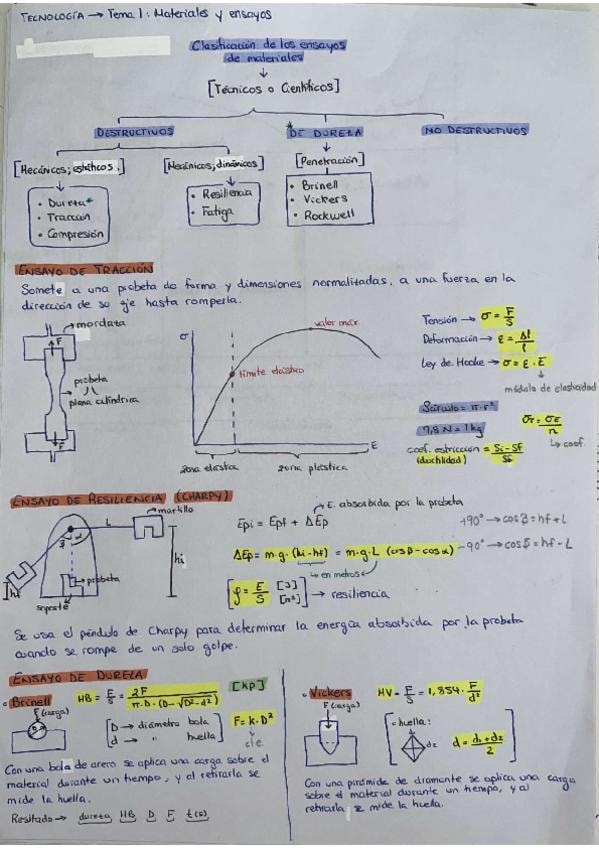 TECNOLOGÍA → Tema 1: Materiales y ensayos
Clasificación de los ensayos
de materiales
[Técnicos o Científicos]
DESTRUCTIVOS
* DE DUREZA
NO DESTRUCTIVOS
[Mecánicos; estáticos.]
[Mecánicos; dinámicos]
[Penetración]
• Dureza*
• Tracción
• Compresión
• Resiliencia
• Fatiga
• Brinell
• Vickers
• Rockwell
ENSAYO DE TRACCIÓN
Somete a una probeta de forma y dimensiones normalizadas, a una fuerza en la
dirección de su eje hasta romperla.
mordaza
F
probeta
plana cilíndrica
F
σ
valor máx
límite elástico
E
zona elástica
zona plástica
Tensión → σ = F/S
Deformación → ε = Δl/l
Ley de Hooke → σ = ε · E
módulo de elasticidad
Scírculo = π·r²
9,8 N = 1 kg
σT = σE/n
coef.
coef. estricción = Si - Sf/Sf
(ductilidad)
ENSAYO DE RESILIENCIA (CHARPY)
martillo
L
β α
hi
hf
probeta
soporte
E. absorbida por la probeta
Epi = Epf + ΔEp
+90° → cosβ = hf + L
ΔEp = m·g·(hi - hf) = m·g·L (cosβ - cosα)
-90° → cosβ = hf - L
en metros
[ρ = E/S [J]/[m²]] → resiliencia
Se usa el péndulo de Charpy para determinar la energía absorbida por la probeta
cuando se rompe de un solo golpe.
ENSAYO DE DUREZA
• Brinell
HB = F/S = 2F/π·D·(D-√D²-d²)
[kp]
F (carga)
D
[D → diámetro bola
d → " huella]
F = K·D²
cte.
Con una bola de acero se aplica una carga sobre el
material durante un tiempo, y al retirarla se
mide la huella.
Resultado → dureza HB D F t(s)
• Vickers
HV = F/S = 1,854 · F/d²
F (carga)
• huella:
d2
d = d1+d2/2
Con una pirámide de diamante se aplica una carga
sobre el material durante un tiempo, y al
retirarla se mide la huella.